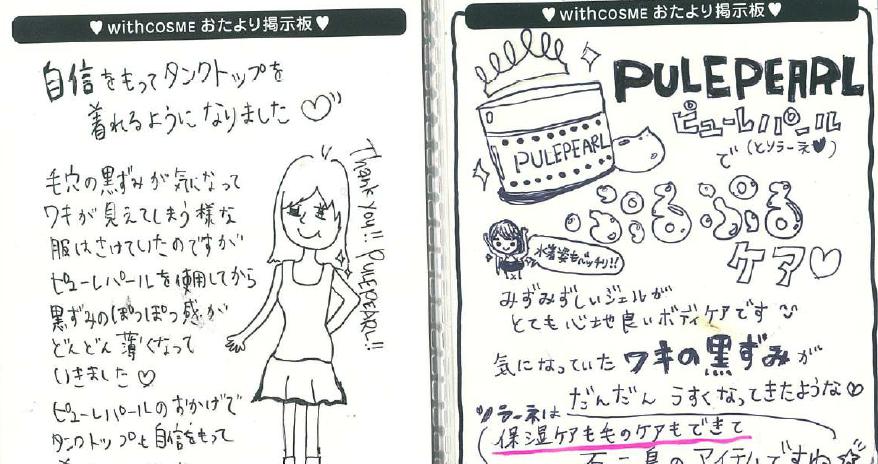 ♥ withCOSME おたより掲示板 ♥
自信をもってタンクトップを
着れるようになりました♡
毛穴の黒ずみが気になって
ワキが見えてしまう様な
服はさけていたのですが
ピューレパールを使用してから
黒ずみのぽつぽつ感が
どんどん薄くなって
いきました♡
ピューレパールのおかげで
タンクトップも自信をもって
Thank you!! PULEPEARL!!
♥ withCOSME おたより掲示板 ♥
PULEPEARL
PULEPEARL
ピューレパール
で(とソラーネ♥)
ぷるぷる
ケア♡
水着姿もバッチリ!!
みずみずしいジェルが
とても心地良いボディケアです
気になっていたワキの黒ずみが
だんだん うすくなってきたような♡
ソラーネは
保湿ケアも毛のケアもできて
石二鳥のアイテムですね☆